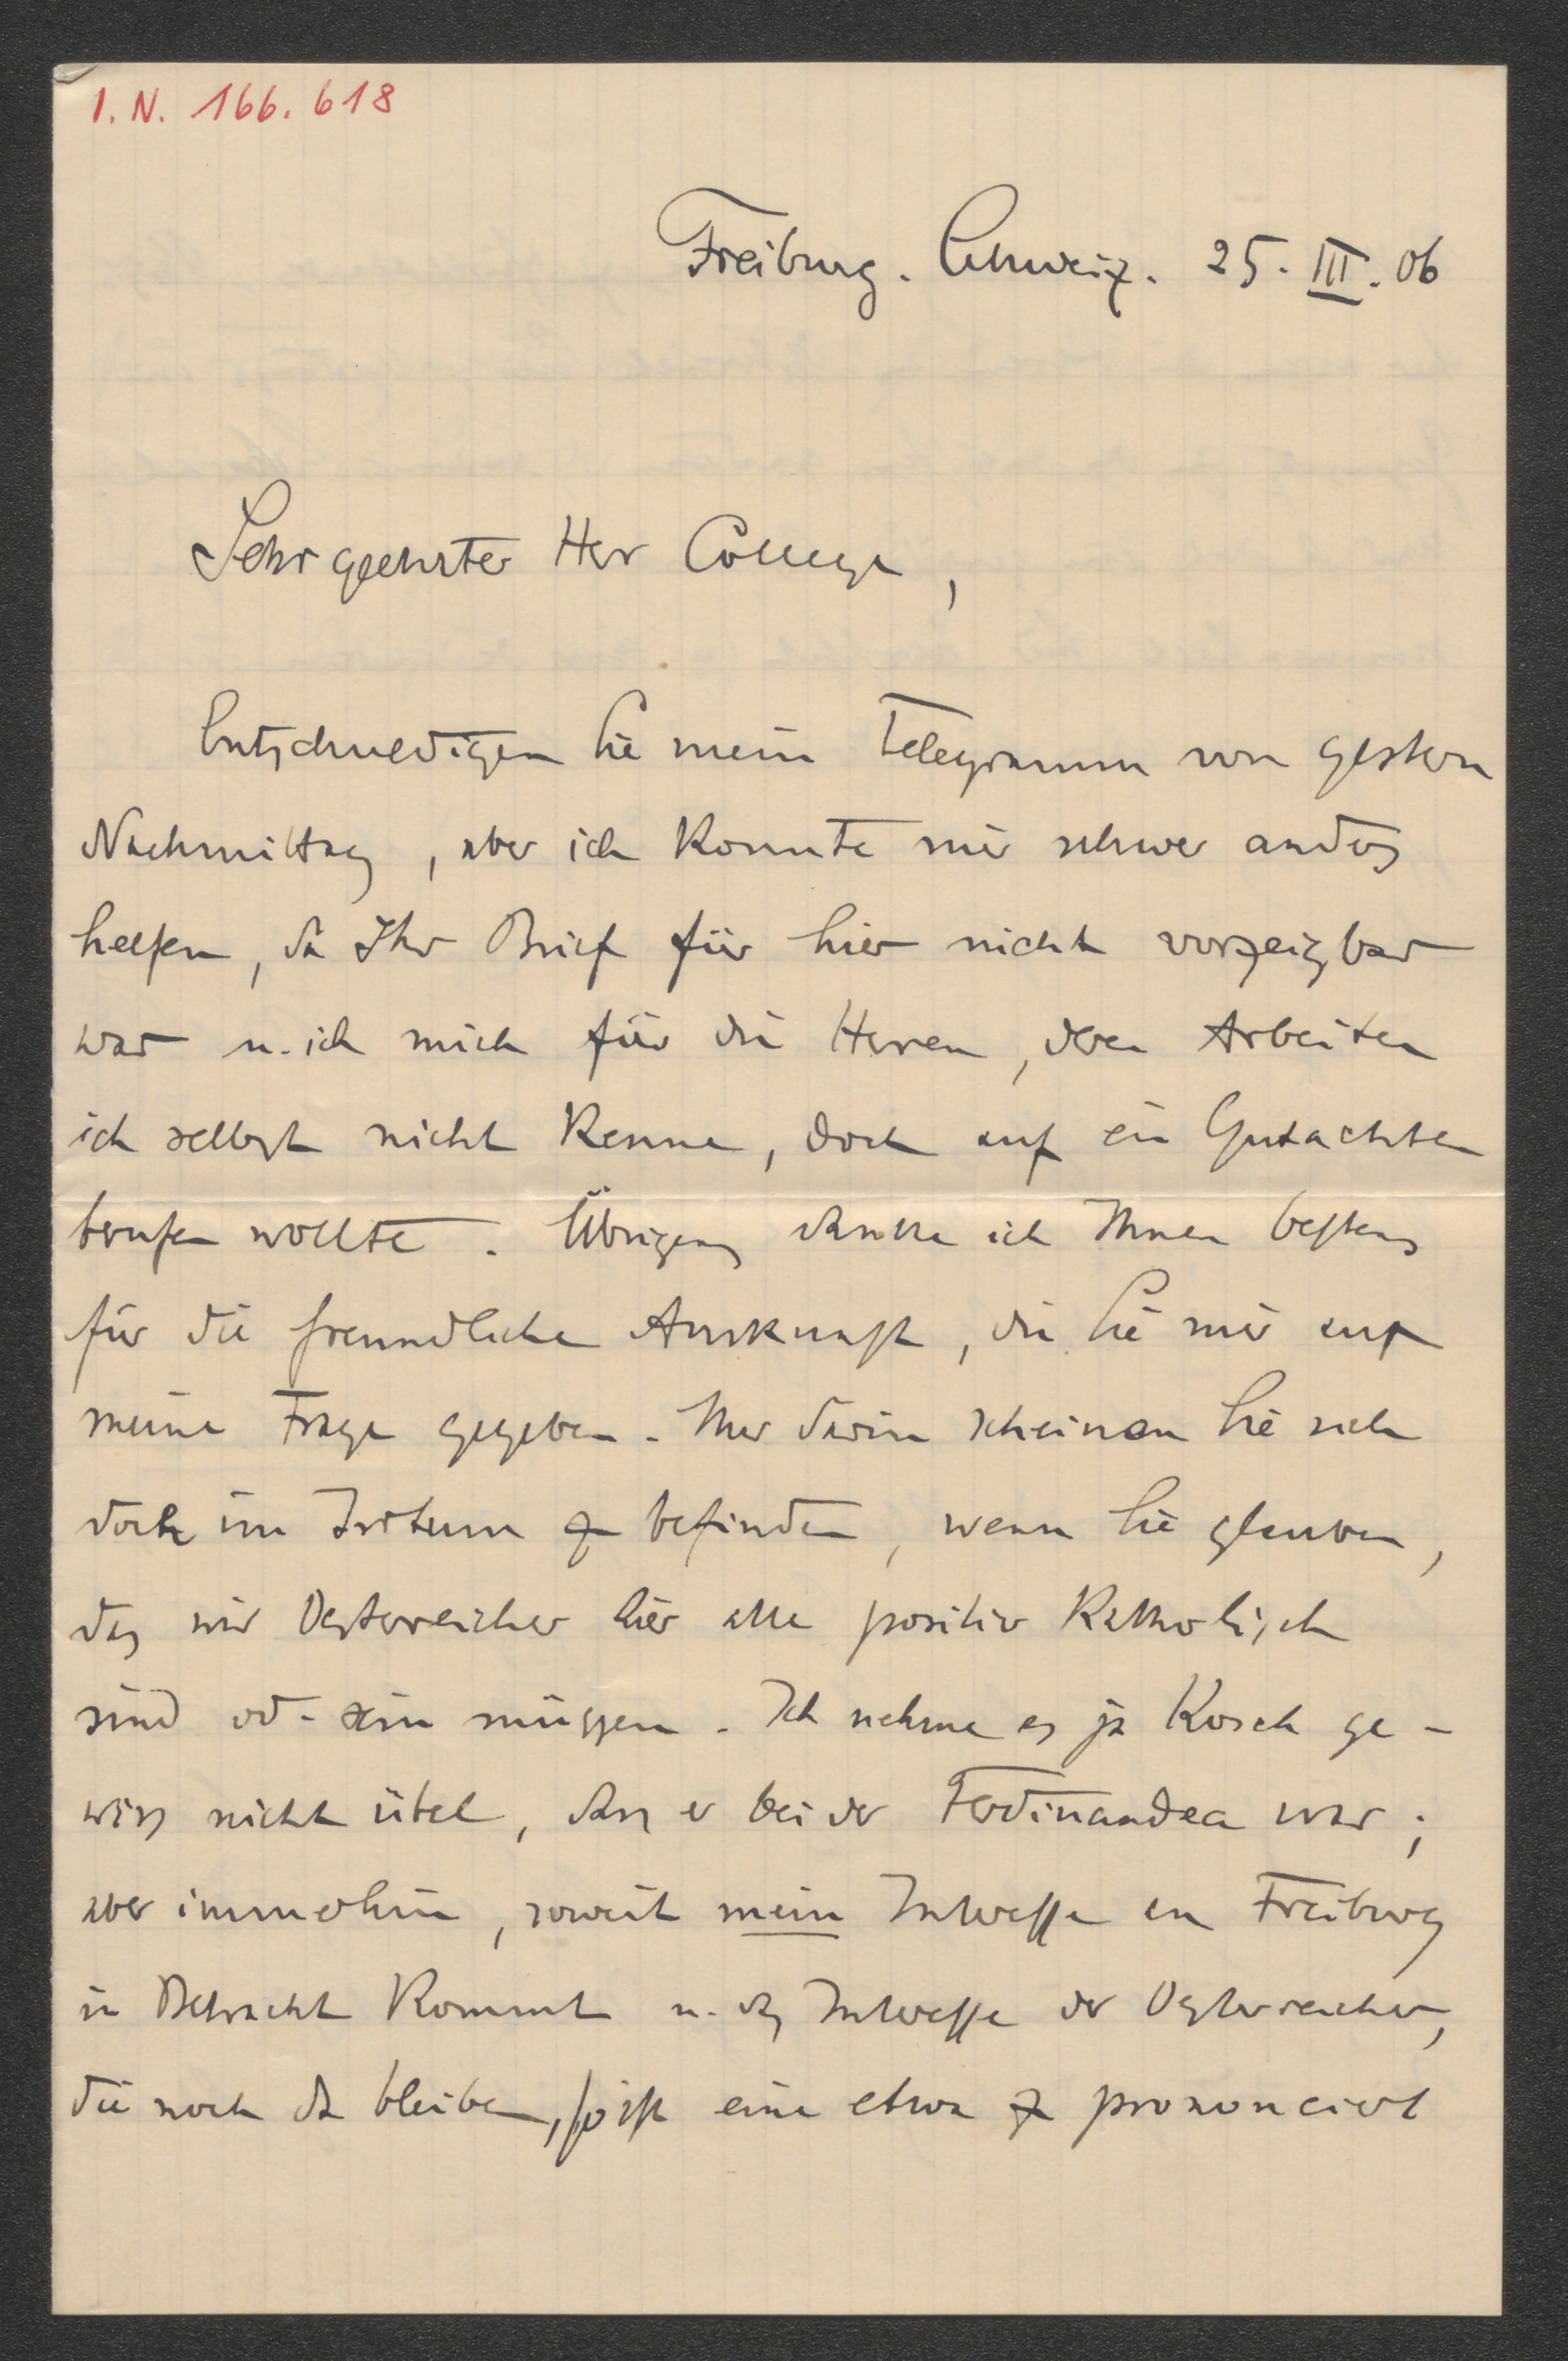 I.N. 166.618
Freiburg. Schweiz. 25. III. 06
Sehr geehrter Herr College,
Entschuldigen Sie mein Telegramm von gestern
Nachmittag, aber ich konnte mir schwer anders
helfen, da Ihr Brief für hier nicht vorzeigbar
war u. ich mich für die Herren, deren Arbeiten
ich selbst nicht kenne, doch auf ein Gutachten
berufen wollte. Übrigens danke ich Ihnen bestens
für die freundliche Auskunft, die Sie mir auf
meine Frage gegeben. Nur darin scheinen Sie sich
doch im Irrtum zu befinden, wenn Sie glauben,
das wir Oesterreicher hier alle positiv katholisch
sind od. sein müssen. Ich nehme es ja Kosch ge-
wiss nicht übel, dass er bei der Ferdinandea war;
aber immerhin, soweit mein Interesse an Freiburg
in Betracht kommt u. das Interesse der Oesterreicher,
die noch da bleiben, so ist eine etwa zu prononciert